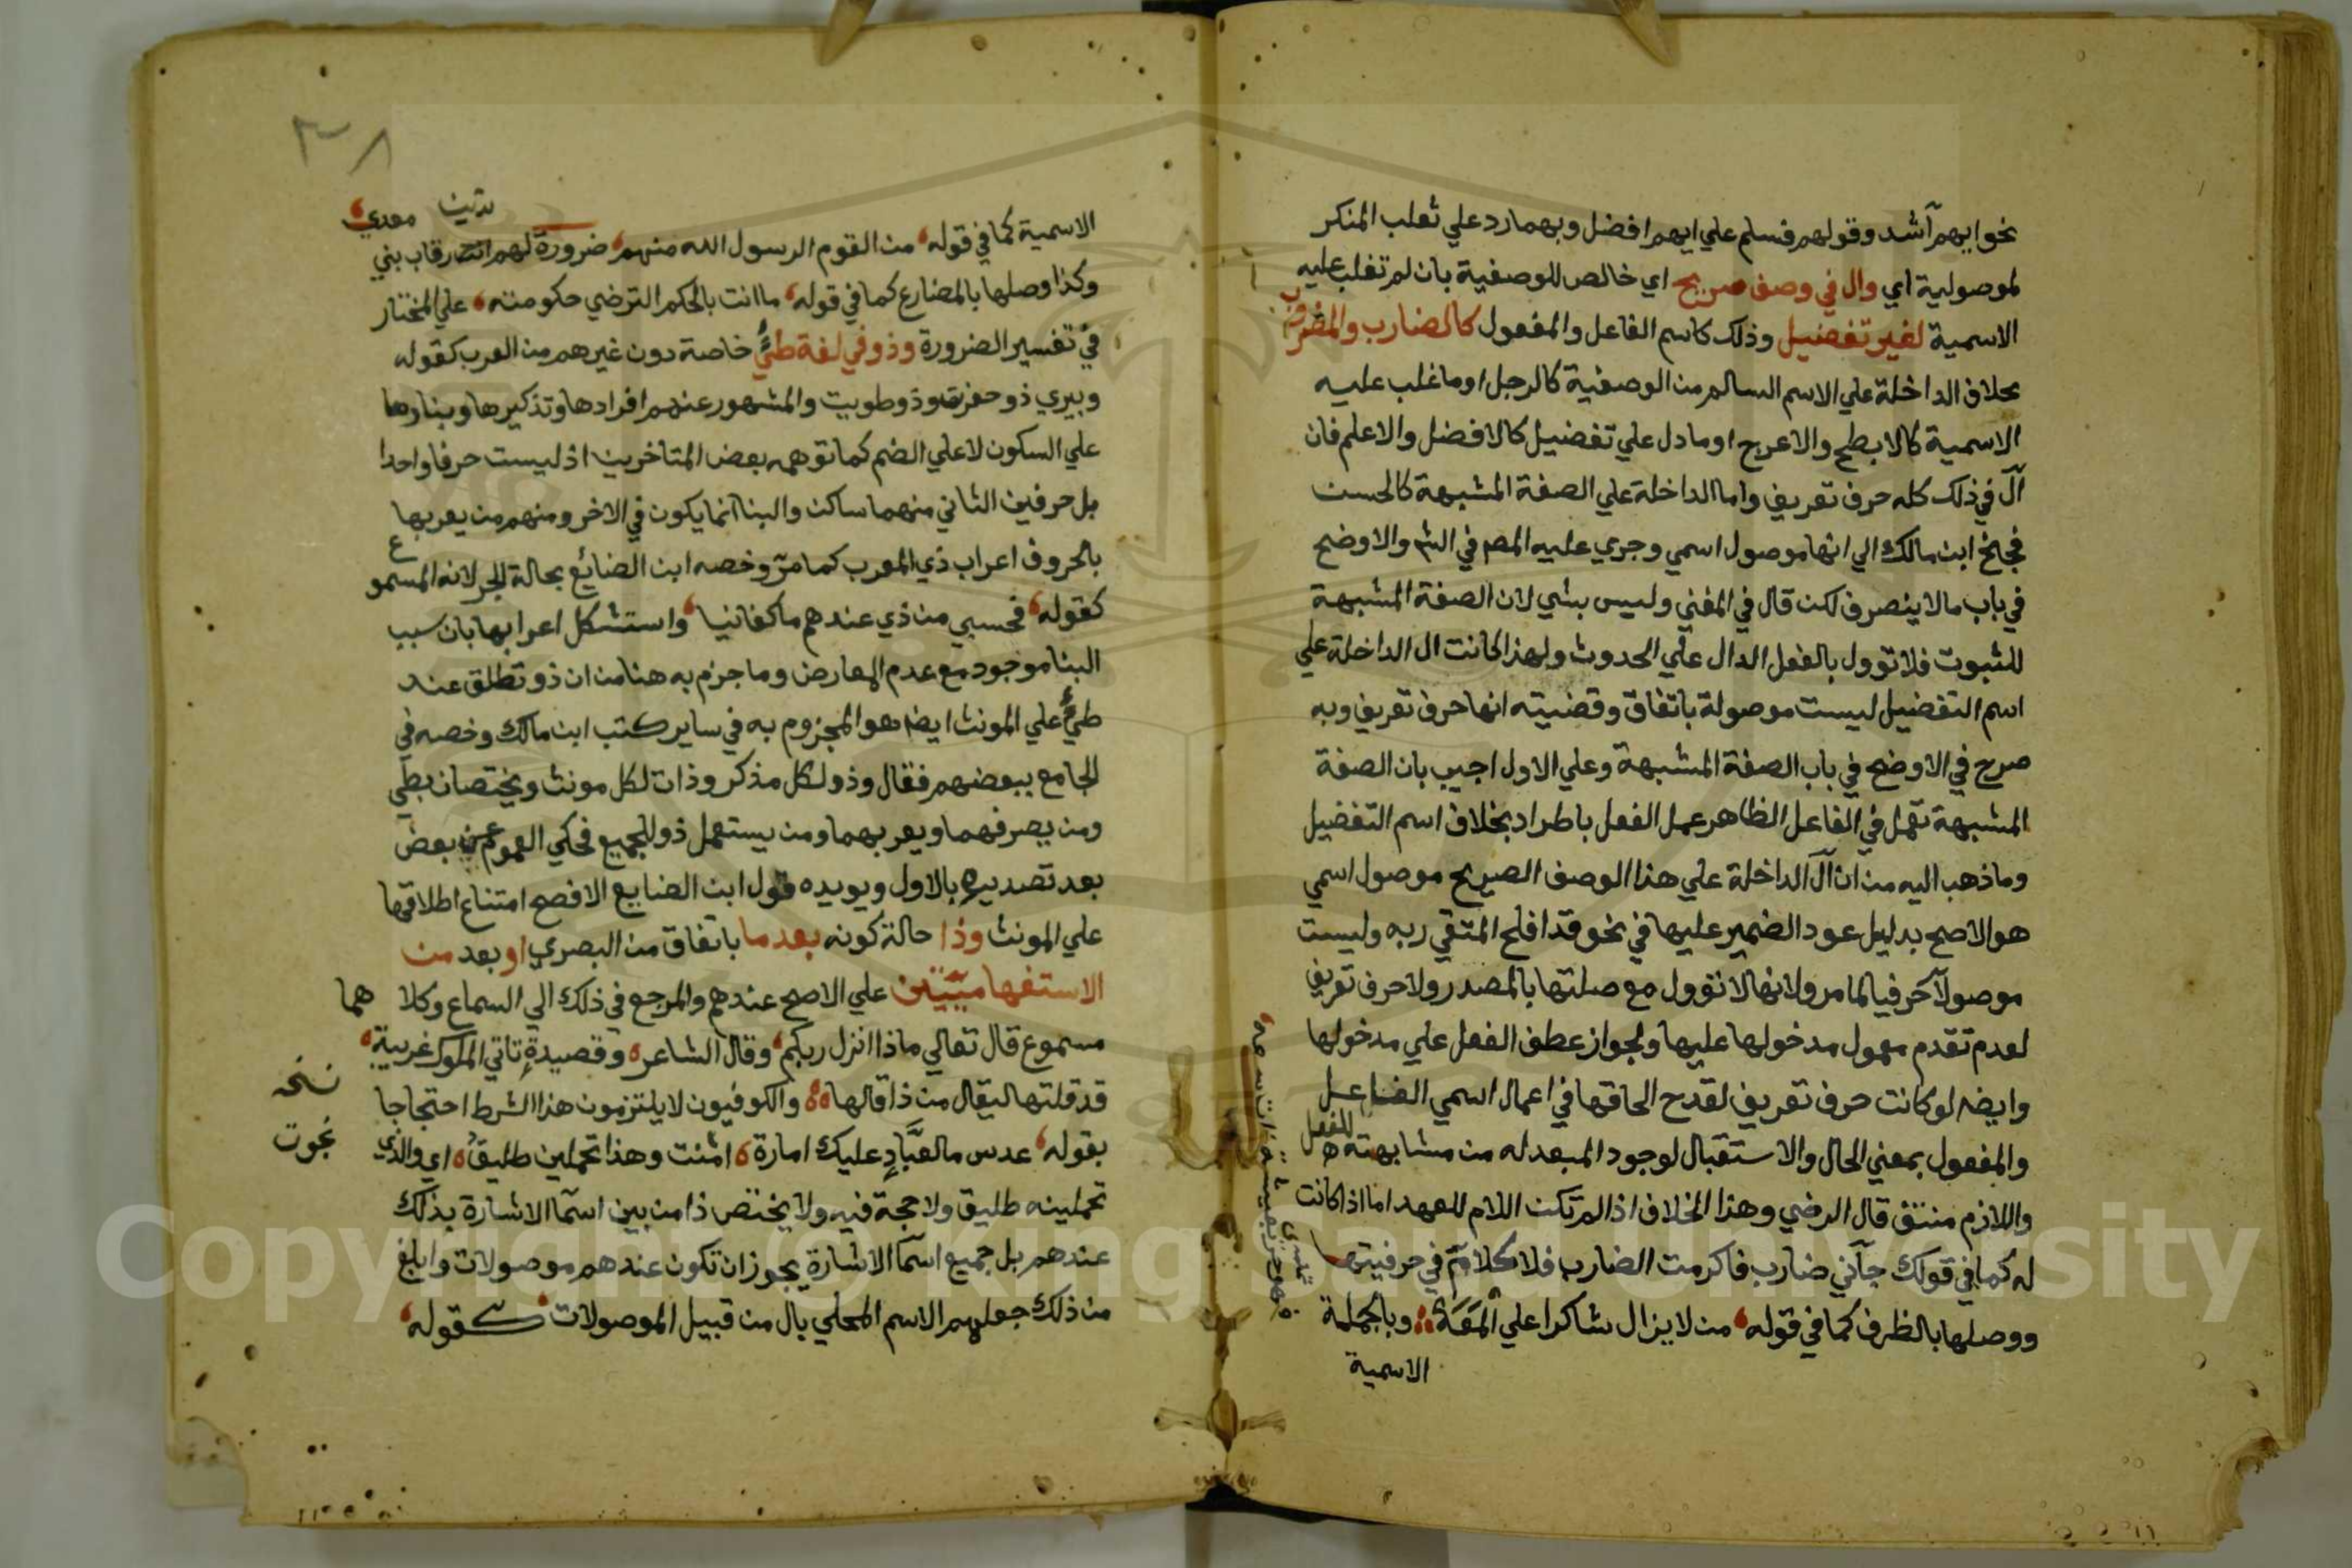 نحو ايهم اشد وقولهم فسلم علي ايهم افضل وبهما رد علي ثعلب المنكر
لموصولية اي وال في وصف صريح اي خالص للوصفية بان لم تغلب عليه
الاسمية لغير تفضيل وذلك كاسم الفاعل والمفعول كالضارب والمضروب
بخلاف الداخلة علي الاسم السالم من الوصفية كالرجل او ما غلب عليه
الاسمية كالابطح والاعرج او ما دل علي تفضيل كالافضل والاعلم فان
آل في ذلك كله حرف تعريف واما الداخلة علي الصفة المشبهة كالحسن
فجنح ابن مالك الي انها موصول اسمي وجري عليه المصـ في الشـ والاوضح
في باب ما لا ينصرف لكن قال في المغني وليس بشي لان الصفة المشبهة
للثبوت فلا توول بالفعل الدال علي الحدوث ولهذا كانت ال الداخلة علي
اسم التفضيل ليست موصولة باتفاق وقضيته انها حرف تعريف وبه
صرح في الاوضح في باب الصفة المشبهة وعلي الاول اجيب بان الصفة
المشبهة تعمل في الفاعل الظاهر عمل الفعل باطراد بخلاف اسم التفضيل
وما ذهب اليه من ان آل الداخلة علي هذا الوصف الصريح موصول اسمي
هو الاصح بدليل عود الضمير عليها في نحو قد افلح المتقي ربه وليست
موصولا حرفيا لما مر ولانها لا توول مع صلتها بالمصدر ولا حرف تعريف
لعدم تقدم معمول مدخولها عليها ولجواز عطف الفعل علي مدخولها
وايضـ لو كانت حرف تعريف لقدح الحاقها في اعمال اسمي الفاعل
والمفعول بمعني الحال والاستقبال لوجود المبعد له من مشابهته للفعل
واللازم منتف قال الرضي وهذا الخلاف اذا لم تكن اللام للعهد اما اذا كانت
له كما في قولك جآني ضارب فاكرمت الضارب فلا كلام في حرفيتها
ووصلها بالظرف كما في قوله من لا يزال شاكرا علي المَعَهْ وبالجملة
الاسمية
الاسمية كما في قوله من القوم الرسول الله منهم ضرورة لهم دانت رقاب بني معدي
وكذا وصلها بالمضارع كما في قوله ما انت بالحكم الترضي حكومته علي المختار
في تفسير الضرورة وذو في لغة طيّ خاصة دون غيرهم من العرب كقوله
وبيري ذو حفرت وذو طويت والمشهور عندهم افرادها وتذكيرها وبناوها
علي السكون لا علي الضم كما توهمه بعض المتاخرين اذ ليست حرفا واحدا
بل حرفين الثاني منهما ساكن والبنا انما يكون في الاخر ومنهم من يعربها
بالحروف اعراب ذي المعرب كما مرّ وخصه ابن الضائع بحالة الجر لانه المسموع
كقوله فحسبي من ذي عندهم ما كفانيا واستشكل اعرابها بان سبب
البنا موجود مع عدم المعارض وما جزم به هنا من ان ذو تطلق عند
طيّ علي المونث ايضـ هو المجزوم به في ساير كتب ابن مالك وخصه في
الجامع ببعضهم فقال وذو لكل مذكر وذات لكل مونث ويختصان بطي
ومن يصرفهما ويعربهما ومن يستعمل ذو للجميع فحكي العموم عن بعض
بعد تصديره بالاول ويويده قول ابن الضايع الافصح امتناع اطلاقها
علي المونث وذا حالة كونه بعد ما باتفاق من البصري او بعد من
الاستفهاميتين علي الاصح عندهم والمرجع في ذلك الي السماع وكلاهما
مسموع قال تعالي ماذا انزل ربكم وقال الشاعر وقصيدةٍ تاتي الملوك غريبة
قد قلتها ليقال من ذا قالها والكوفيون لا يلتزمون هذا الشرط احتجاجا
بقوله عدس ما لعبَّادٍ عليك امارة امنت وهذا تحملين طليق اي والذي
نسخه
نجوت
تحملينه طليق ولا حجة فيه ولا يختص ذا من بين اسما الاشارة بذلك
عندهم بل جميع اسما الاشارة يجوز ان تكون عندهم موصولات وابلغ
من ذلك جعلهم الاسم المحلي بال من قبيل الموصولات كقوله
Copyright © King Saud University